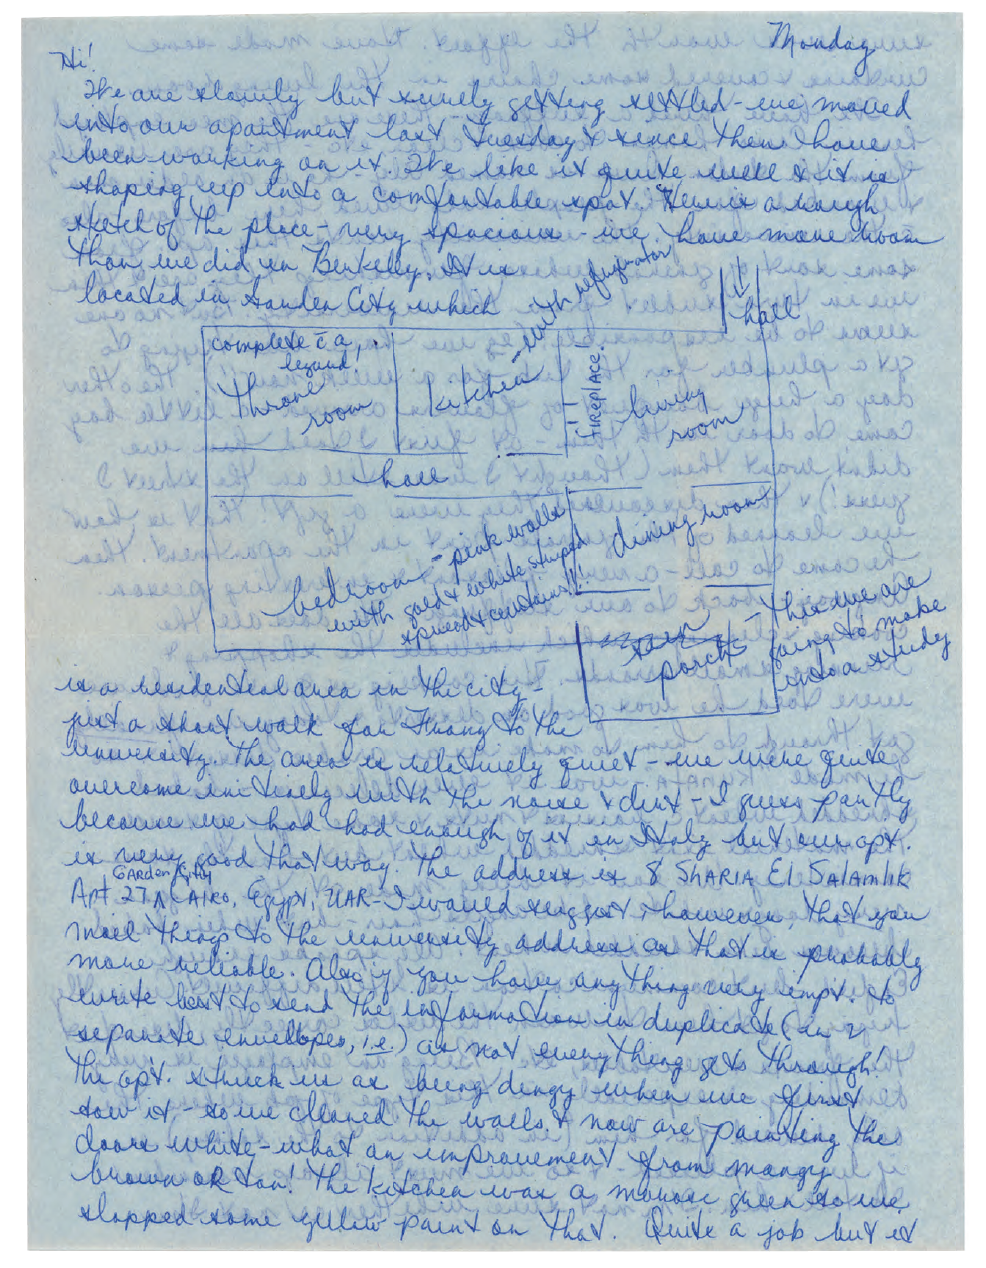 Monday
Hi!
We are slowly but surely getting settled - we moved
into our apartment last Tuesday & since then have
been working on it. We like it quite well & it is
shaping up into a comfortable spot. Here is a rough
sketch of the place - very spacious - we have more room
than we did in Berkelly. It is
located in Garden City which
hall
complete c̄ a
Throne
room
kitchen - with refrigirator
fireplace!
living
room
hall
bedroom - pink walls
with gold & white striped
spread & curtains!!!
dining room
porch - This we are
going to make
into a study
is a residential area in the city -
just a short walk for Frany to the
university. The area is relatively quiet - we were quite
overcome initirely with the noise & dirt - I guess partly
because we had had enough of it in Italy but our apt.
is very good that way. The address is 8 SHARIA El SAlAmlik
GARden City
Apt 27 CAIRO, Egypt, UAR - I would suggest, however, that you
mail things to the university address as that is probably
more reliable. Also if you have anything very impt. to
write best to send the information in duplicate (in 2
separate envellopes, i.e.) as not everything gets through!
The apt. struck us as being dingy when we first
saw it - so we cleaned the walls & now are painting the
doors white - what an improvement from mangy
brown OR tan! The kitchen was a morose green so we
slapped some yellow paint on that. Quite a job but it